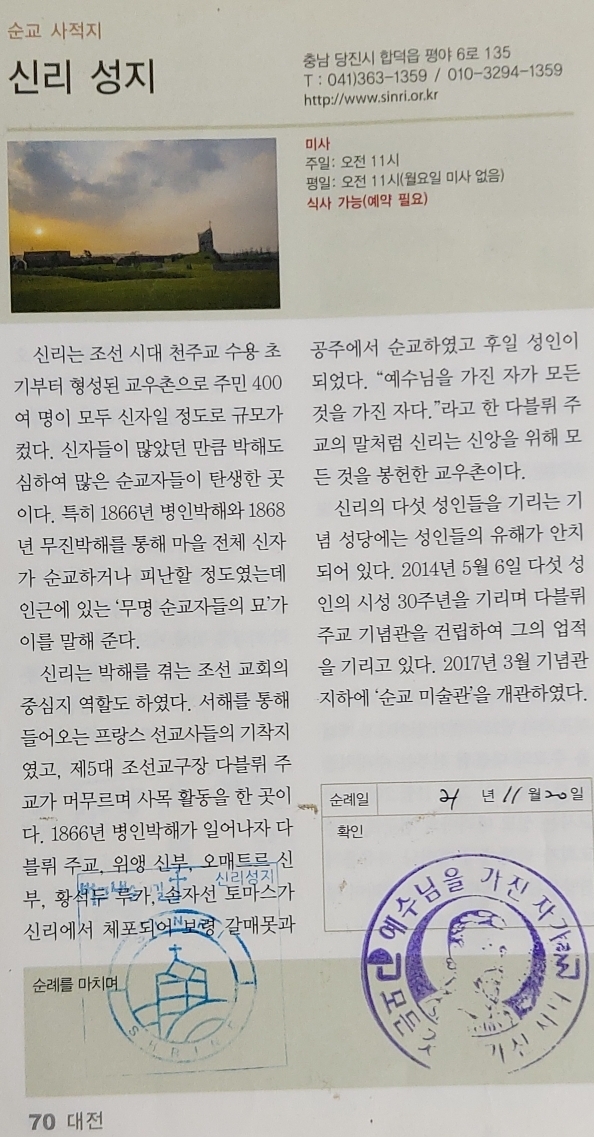 순교 사적지
신리 성지
충남 당진시 합덕읍 평야 6로 135
T : 041)363-1359 / 010-3294-1359
http://www.sinri.or.kr
미사
주일: 오전 11시
평일: 오전 11시(월요일 미사 없음)
식사 가능(예약 필요)
신리는 조선 시대 천주교 수용 초
기부터 형성된 교우촌으로 주민 400
여 명이 모두 신자일 정도로 규모가
컸다. 신자들이 많았던 만큼 박해도
심하여 많은 순교자들이 탄생한 곳
이다. 특히 1866년 병인박해와 1868
년 무진박해를 통해 마을 전체 신자
가 순교하거나 피난할 정도였는데
인근에 있는 ‘무명 순교자들의 묘’가
이를 말해 준다.
신리는 박해를 겪는 조선 교회의
중심지 역할도 하였다. 서해를 통해
들어오는 프랑스 선교사들의 기착지
였고, 제5대 조선교구장 다블뤼 주
교가 머무르며 사목 활동을 한 곳이
다. 1866년 병인박해가 일어나자 다
블뤼 주교, 위앵 신부, 오매트르 신
부, 황석두 루가, 손자선 토마스가
신리에서 체포되어 보령 갈매못과
공주에서 순교하였고 후일 성인이
되었다. “예수님을 가진 자가 모든
것을 가진 자다.”라고 한 다블뤼 주
교의 말처럼 신리는 신앙을 위해 모
든 것을 봉헌한 교우촌이다.
신리의 다섯 성인들을 기리는 기
념 성당에는 성인들의 유해가 안치
되어 있다. 2014년 5월 6일 다섯 성
인의 시성 30주년을 기리며 다블뤼
주교 기념관을 건립하여 그의 업적
을 기리고 있다. 2017년 3월 기념관
지하에 ‘순교 미술관’을 개관하였다.
순례일 21 년 11 월 20 일
확인
예수님을 가진 자가
모든
가진
신리성지
SHRINE
순례를 마치며
70 대전